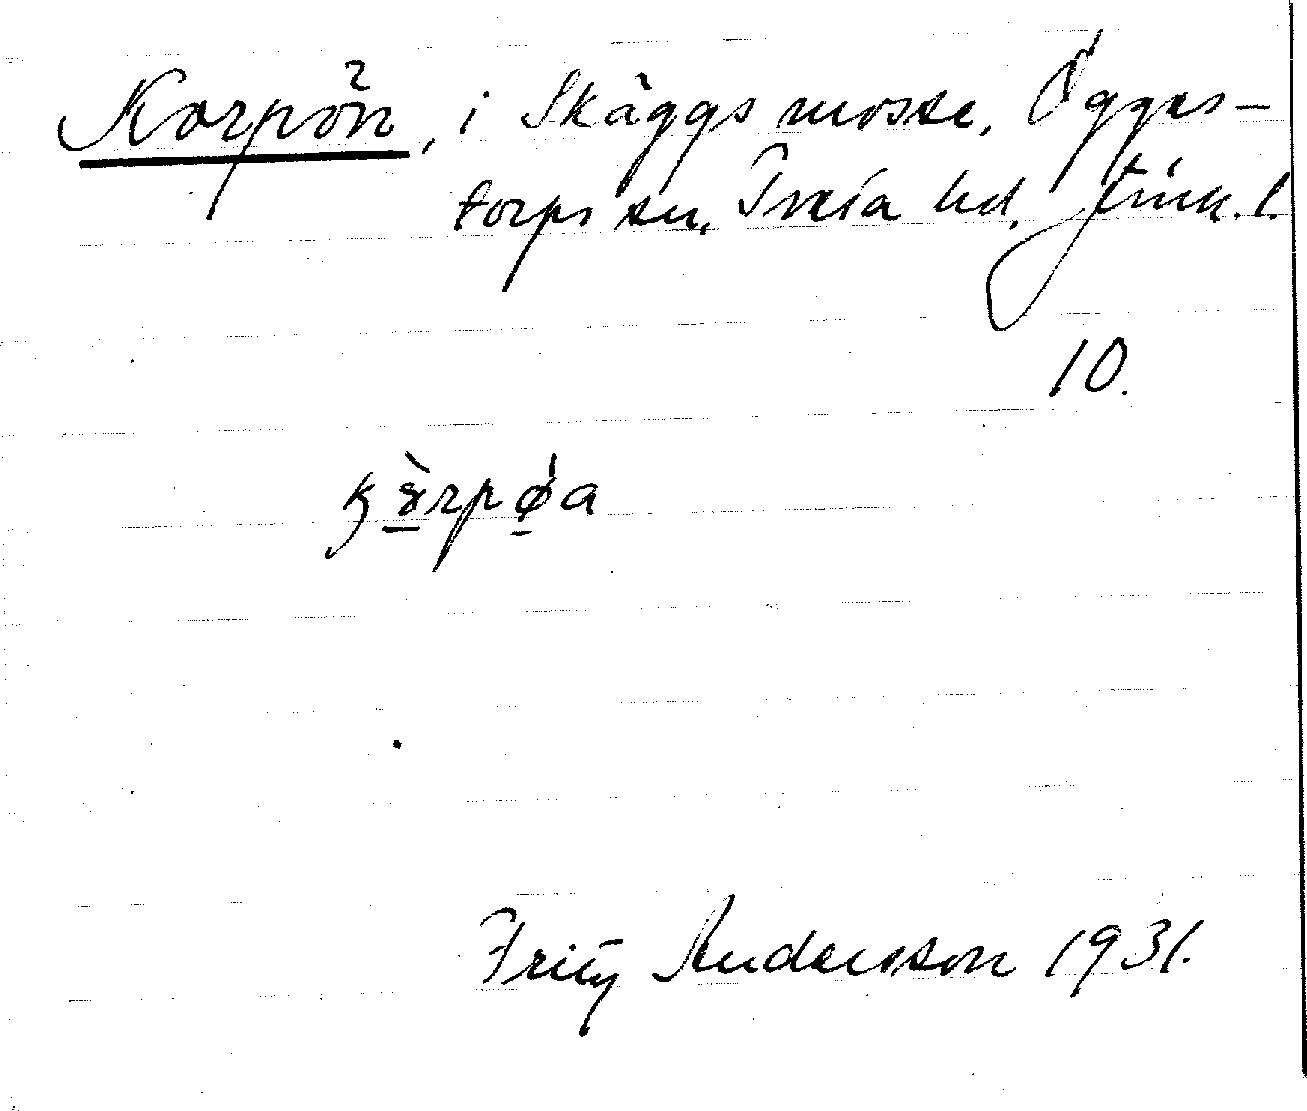 Korpön, i Skäggs mosse, Ögges-
torps sn, Tveta hd, Jönk. l.
10.
Fritz Andersson 1931.